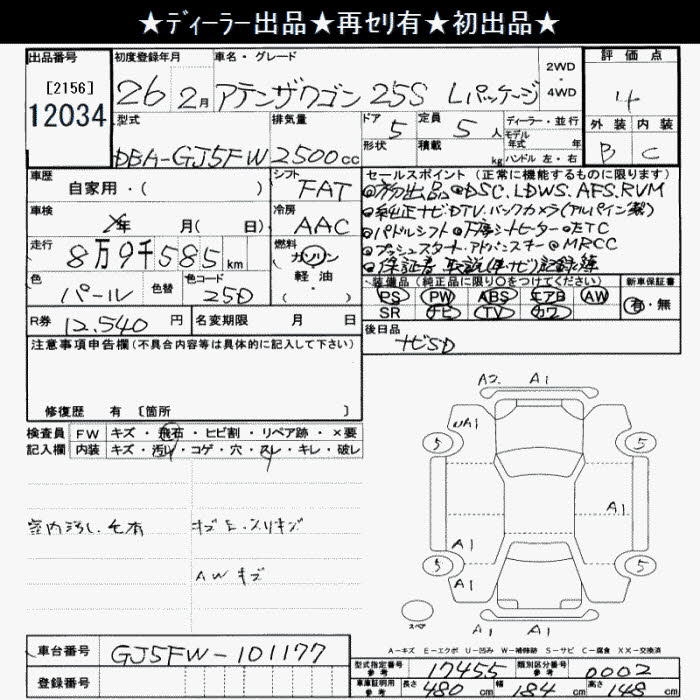 ★ディーラー出品★再セリ有★初出品★
出品番号 初度登録年月 車名・グレード 2WD・4WD 評価点
[2156] 26 2月 アテンザワゴン 25S Lパッケージ 4
12034 型式 排気量 ドア 5 定員 5人 ディーラー・並行 外装 内装
DBA-GJ5FW 2500cc 形状 積載 kg モデル年式 年式 ハンドル 左・右 B C
車歴 自家用・( ) シフト FAT セールスポイント(正常に機能するものに限ります)
◎初出品◎DSC.LDWS.AFS.RVM
車検 年 月( 日) 冷房 AAC ◎純正ナビDTV.バックカメラ(アルパイン製)
走行 8万9千585km 燃料 ガソリン・軽油・( ) ◎パドルシフト◎ETC
◎プッシュスタート.アドバンスキー◎MRCC
色 パール 色替 色コード 25D ◎保証書 取説(車.ナビ)記録簿
装備品(純正品に限り○をつけてください) 新車保証書
PS PW ABS エアB AW 有・無
SR ナビ TV カワ
R券 12.540円 名変期限 月 日
後日品 ナビSD
注意事項申告欄(不具合内容等は具体的に記入して下さい)
修復歴 有 [箇所 ]
検査員 FW キズ・飛石・ヒビ割・リペア跡・×要
記入欄 内装 キズ・汚れ・コゲ・穴・スレ・キレ・破レ
室内汚れ.
AWキズ
A2 A1
UA1
5 5
A1
A1
5 5
A1
スペア
A1 A1
A-キズ E-エクボ U-凹み W-補修跡 S-サビ C-腐食 XX-交換済
車台番号 GJ5FW-101177
型式指定番号 参考 17455 類別区分番号 参考 0002
登録番号
車庫証明用 参考 長さ 480cm 幅 184cm 高さ 148cm